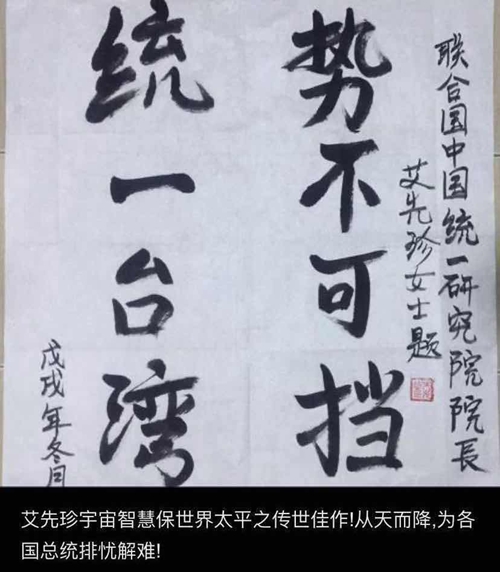 联合国中国统一研究院院長
艾先珍女士题
势不可挡
统一台湾
戊戌年冬月
艾先珍宇宙智慧保世界太平之传世佳作!从天而降,为各
国总统排忧解难!